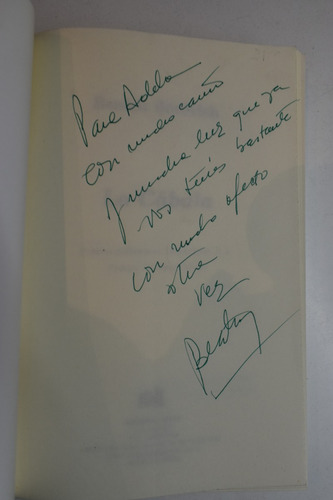 Para Adda
con mucho cariño
y mucha luz que ya
vos tenés bastante
con mucho afecto
otra
vez
Beatriz